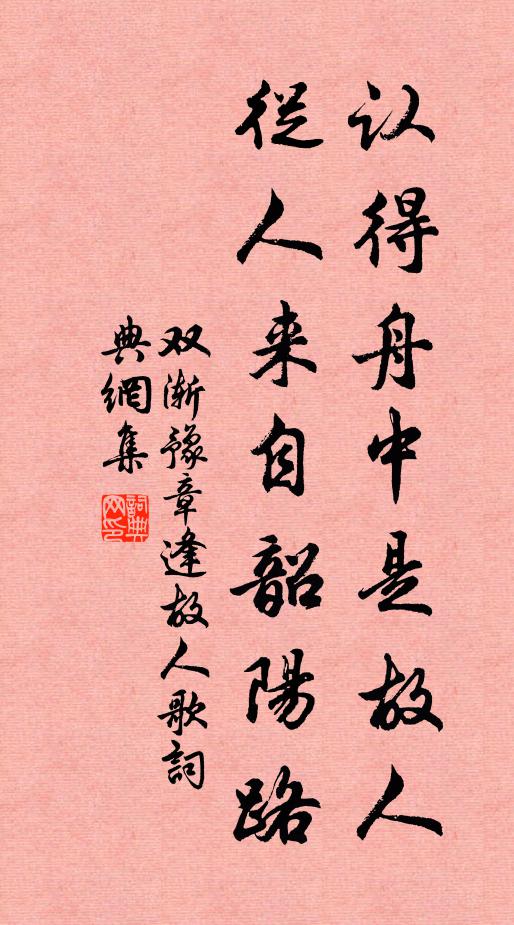 认得舟中是故人
從人来自韶陽路
双渐豫章逢故人歌詞
典網集
詞典
网印